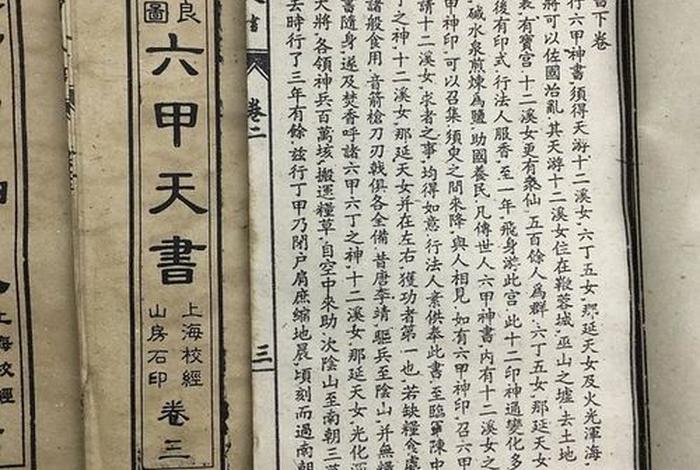 書下卷
行六甲神書須得天游十二溪女六丁五女那延天女及火光渾海
將可以佐國治亂其天游十二溪女住在鞭蓉城巫山之墟去土地
裏有寶宮十二溪女更有衆仙五百餘人爲群六丁五女那延天女
後有印式行法人服香至一年飛身游此宮此十二印神通變化多
碱水泉煎煉爲鹽助國養民凡傳世人六甲神書內有十二溪女之
甲神印可以召集須臾之間來降與人相見如有六甲神印召六甲
請十二溪女求者之事均得如意行法人素供奉此書至臨軍陳中
丁之神十二溪女那延天女并在左右獲功者第一也若缺糧食處
諸般食用音箭槍刀刃戟俱各全備昔唐李靖驅兵至陰山并無糧
書隨身遂及焚香呼諸六甲六丁之神十二溪女那延天女光化渾
天將各領神兵百萬垓搬運糧草自空中來助次陰山至南朝三萬
去時行了三年有餘兹行丁甲乃閉戶肩庶縮地晨頃刻而過南朝
書 卷二 三
良
圖
六甲天書
上海校經
山房石印
卷三
上海校經